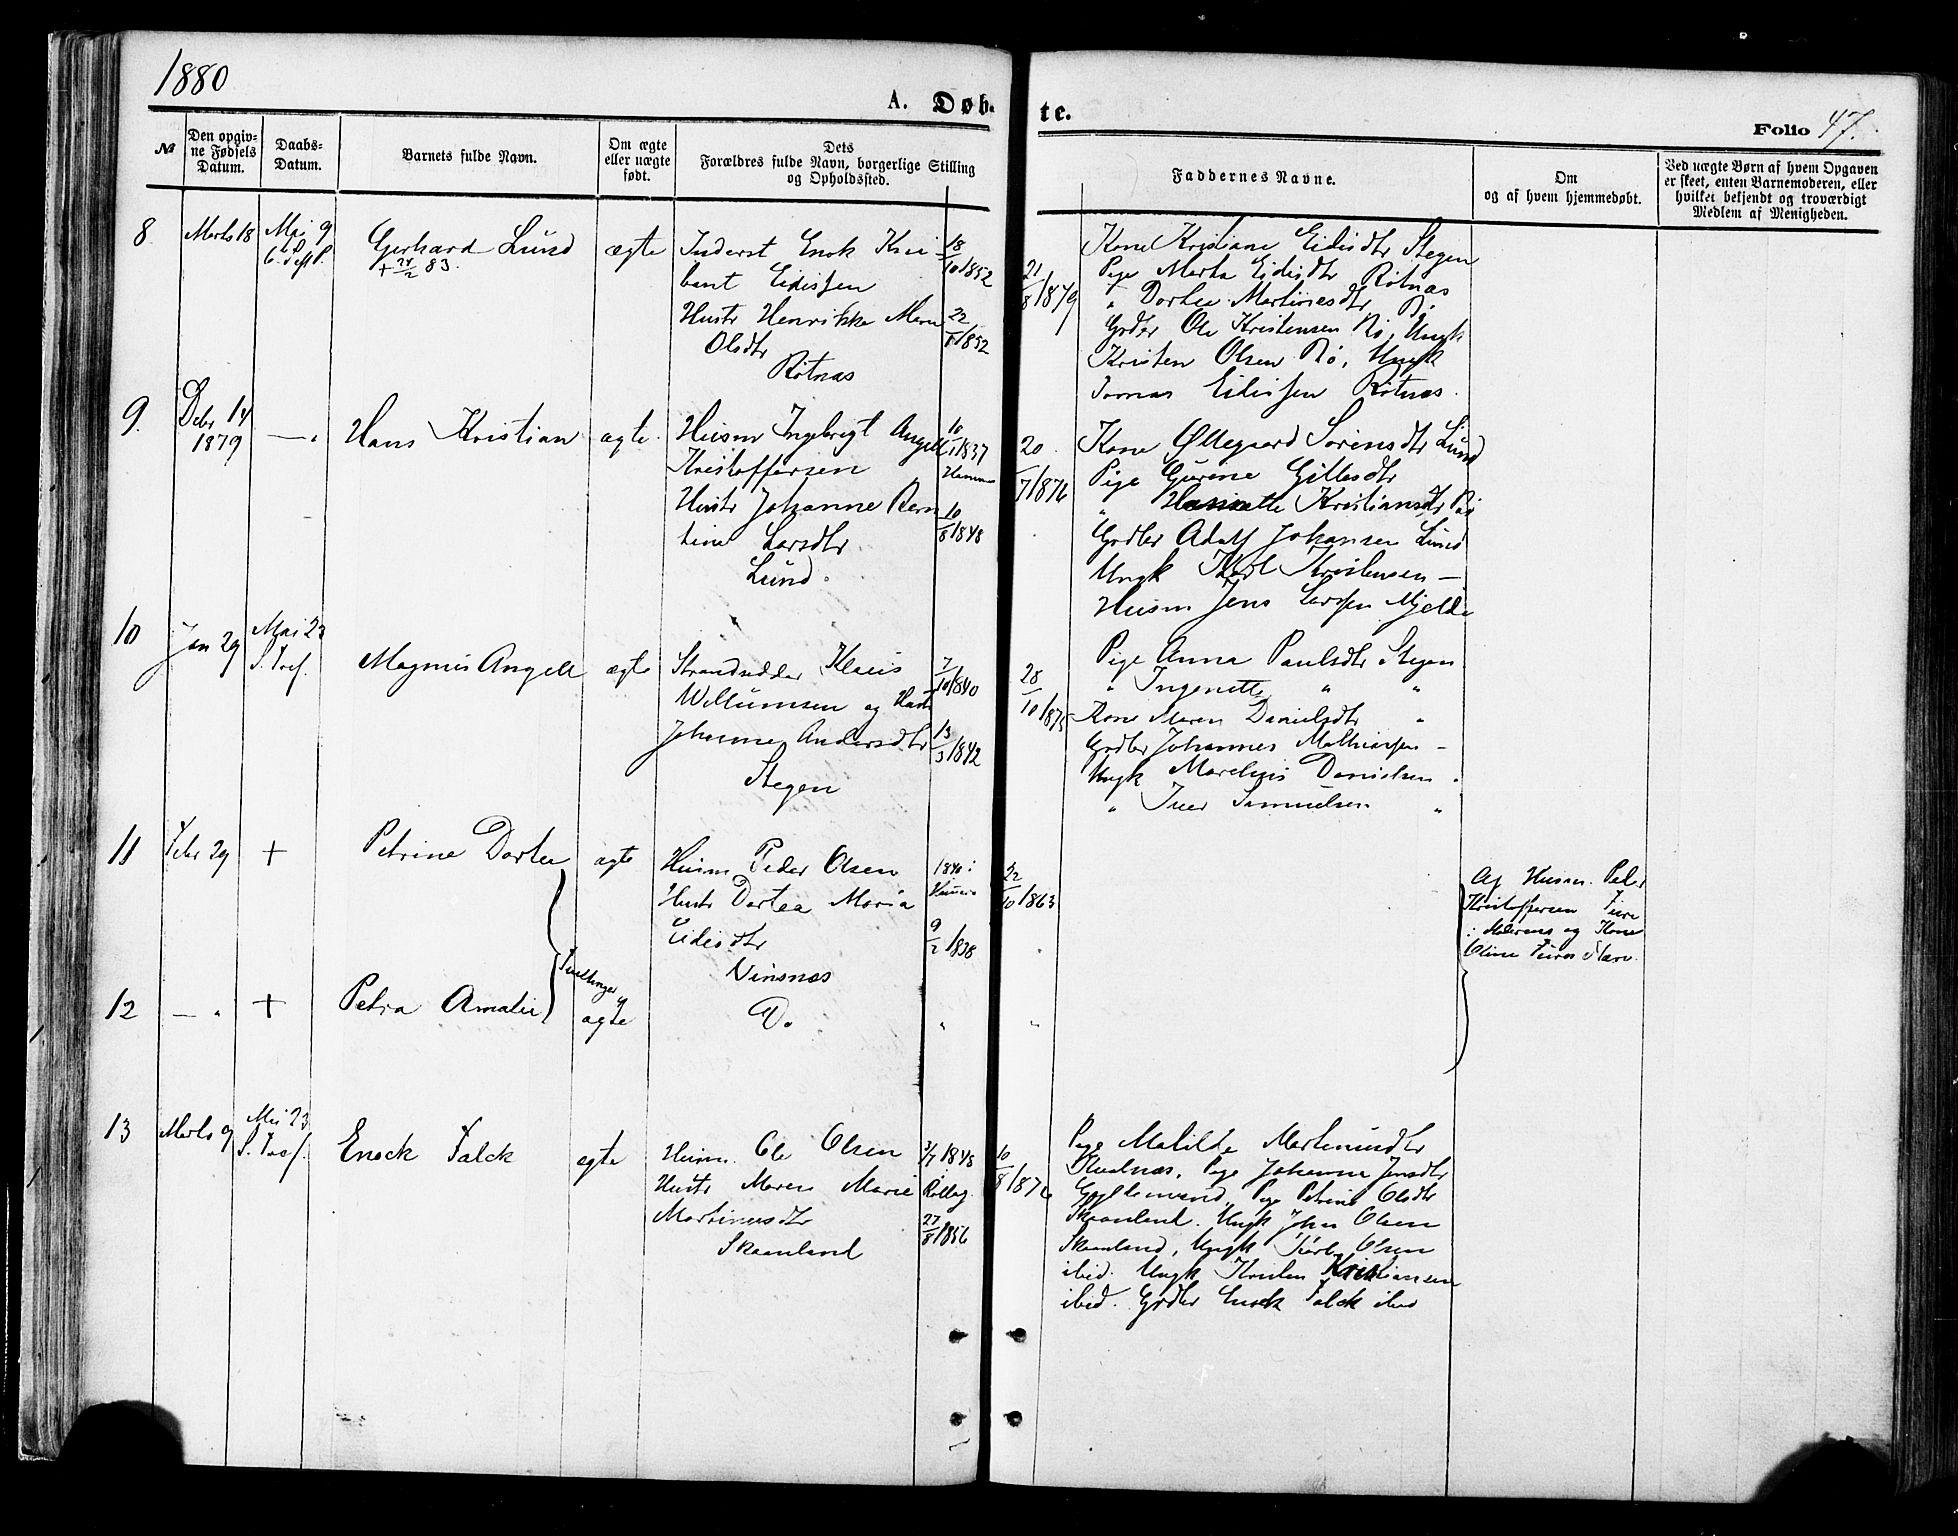 1880
A. Døb-
te.
Folio 47.
№
Den opgiv-
ne Fødsels
Datum.
Daabs-
Datum.
Barnets fulde Navn.
Om ægte
eller uægte
født.
Dets
Forældres fulde Navn, borgerlige Stilling
og Opholdssted.
Faddernes Navne.
Om
og af hvem hjemmedøbt.
Ved uægte Børn af hvem Opgaven
er skeet, enten Barnemoderen, eller
hvilket bekjendt og troværdigt
Medlem af Menigheden.
8
Marts 18
Mai 9
6. S. eft P.
Gerhard Lund
+ 24/2 83.
ægte
Inderst Enok Kri
bent Eidissen
Hustr Henrikke Mari
Olsdtr
Røtnæs
18/10 1852
22/8 1852
21/8 1879
Kone Kristiane Eidisdtr Stegen
Pige Marta Eidisdtr Røtnæs
" Dortea Martinesdtr Rø
Grdbr Ole Kristensen Rø, Ungk
Kristen Olsen Rø, Ungk
Jonas Eidissen Røtnæs.
9.
Debr 14
1879
— "
Hans Kristian
ægte.
Husm Ingebrigt Angell
Kristoffersen
Hustr Johanne Bern
tine Larsdtr
Lund.
10/1 1837
10/8 1848
20/7 1876
Kone Øllegaard Sørensdtr Lund
Pige Gurine Gillesdtr
" Kristiansdtr
Grdbr Adolf Johansen Lund
Ungk Karl Kristensen —
Husm Jens Larssen Mjelde
10
Jan 29
Mai 23
S. Tref.
Magnus Angell
ægte
Strandsidder Klaus
Willumsen og Hustr
Johanne Andersdtr
Stegen
7/10 1840
13/3 1842
28/10 1875
Pige Anna Paulsdtr Stegen
" Ingenette " "
Kone Maren Danielsdtr "
Grdbr Johannes Mathiassen —
Ungk Marelius Danielsen "
" Iver Samuelsen "
11
Febr 29
+
Petrine Dortea
ægte
Husm Peder Olsen
Hustr Dortea Maria
Eidisdtr
Vinsnæs
1840 i
9/2 1838
22/10 1863
Af Husm. Peder
Kristoffersen
og Kone
Oline
12
— "
+
Petra Amalie
Tvillinger
ægte
Do
"
"
13
Marts 9
Mai 23
S. Tref.
Enock Falck
ægte
Husm. Ole Olsen
Hustr Maren Marie
Martinusdtr
Skaanland
3/7 1848
Rollag
27/8 1856
10/8 1876
Pige Matilde Martinusdtr
Pige Johanna Jensdtr
Pige Petrine Olsdtr
Skaanland. Ungk John Olsen
Skaanland, Ungk Olsen
ibid. Ungk Kristen Kristiansen
ibid. Grdbr Enock Falck ibid